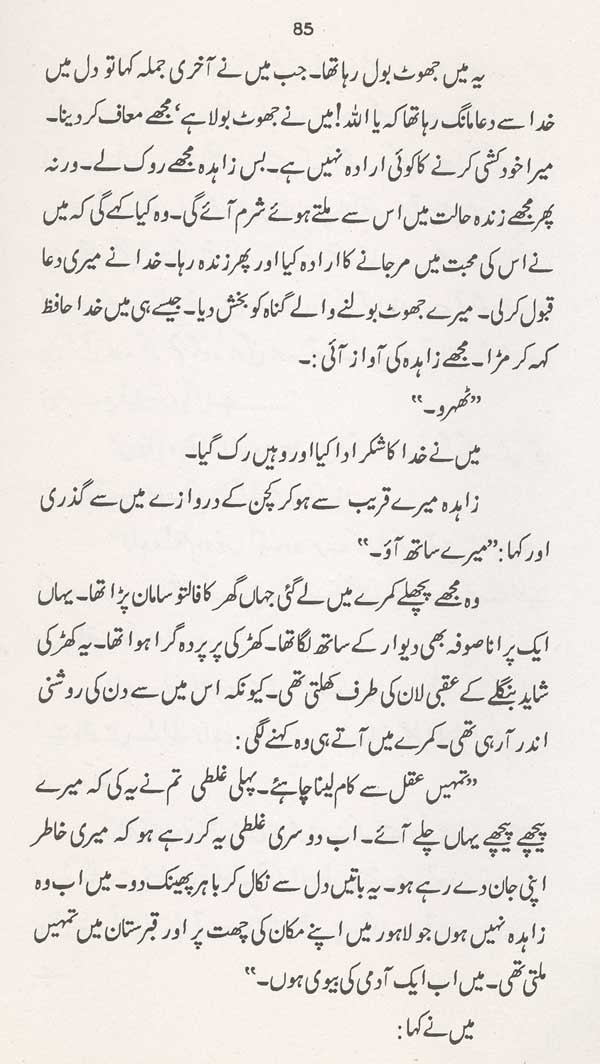 85
یہ میں جھوٹ بول رہا تھا۔ جب میں نے آخری جملہ کہا تو دل میں
خدا سے دعا مانگ رہا تھا کہ یا اللہ! میں نے جھوٹ بولا ہے‘ مجھے معاف کر دینا۔
میرا خود کشی کرنے کا کوئی ارادہ نہیں ہے۔ بس زاہدہ مجھے روک لے۔ ورنہ
پھر مجھے زندہ حالت میں اس سے ملتے ہوئے شرم آئے گی۔ وہ کیا کہے گی کہ میں
نے اس کی محبت میں مر جانے کا ارادہ کیا اور پھر زندہ رہا۔ خدا نے میری دعا
قبول کر لی۔ میرے جھوٹ بولنے والے گناہ کو بخش دیا۔ جیسے ہی میں خدا حافظ
کہہ کر مڑا۔ مجھے زاہدہ کی آواز آئی :۔
”ٹھہرو۔“
میں نے خدا کا شکر ادا کیا اور وہیں رک گیا۔
زاہدہ میرے قریب سے ہو کر کچن کے دروازے میں سے گذری
اور کہا : ”میرے ساتھ آؤ۔“
وہ مجھے پچھلے کمرے میں لے گئی جہاں گھر کا فالتو سامان پڑا تھا۔ یہاں
ایک پرانا صوفہ بھی دیوار کے ساتھ لگا تھا۔ کھڑکی پر پردہ گرا ہوا تھا۔ یہ کھڑکی
شاید بنگلے کے عقبی لان کی طرف کھلتی تھی۔ کیونکہ اس میں سے دن کی روشنی
اندر آ رہی تھی۔ کمرے میں آتے ہی وہ کہنے لگی :
”تمہیں عقل سے کام لینا چاہئے۔ پہلی غلطی تم نے یہ کی کہ میرے
پیچھے پیچھے یہاں چلے آئے۔ اب دوسری غلطی یہ کر رہے ہو کہ میری خاطر
اپنی جان دے رہے ہو۔ یہ باتیں دل سے نکال کر باہر پھینک دو۔ میں اب وہ
زاہدہ نہیں ہوں جو لاہور میں اپنے مکان کی چھت پر اور قبرستان میں تمہیں
ملتی تھی۔ میں اب ایک آدمی کی بیوی ہوں۔“
میں نے کہا :